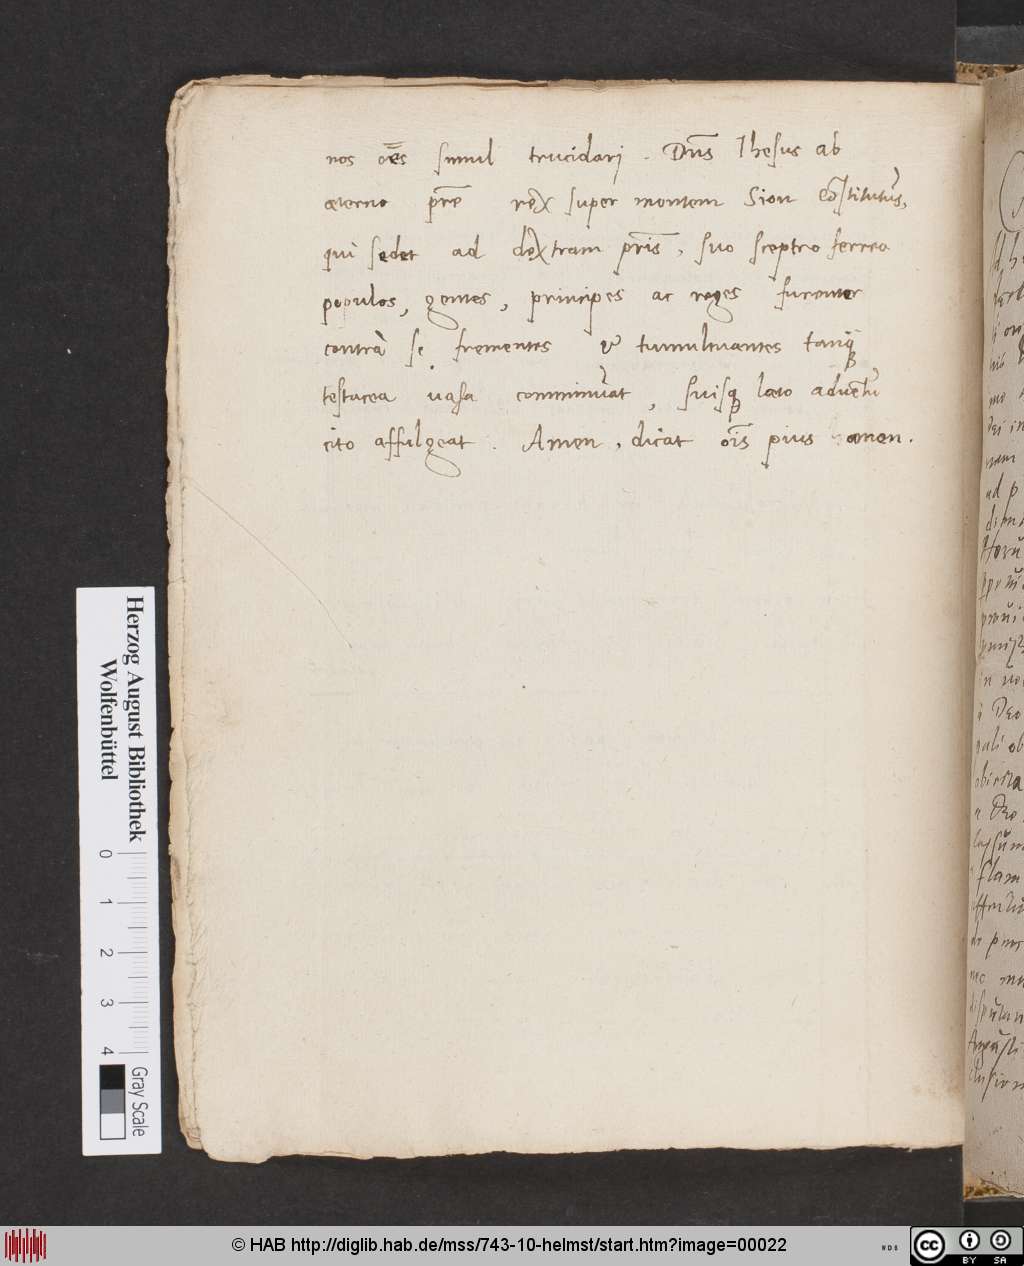 nos o̅es simul trucidari . Dn̅s Ihesus ab
æterno pr̅e rex super montem Sion co̅stitutus,
qui sedet ad dextram pr̅is, suo sceptro ferreo
populos, gentes, principes ac reges furenter
contrà se frementes & tumultuantes tanq̃
testacea vasa comminuat, suisq̃ læto adue̅tu
cito affulgeat . Amen, dicat oi̅s pius amen.
Herzog August Bibliothek
Wolfenbüttel
0 1 2 3 4
Gray Scale
© HAB http://diglib.hab.de/mss/743-10-helmst/start.htm?image=00022
cc BY SA